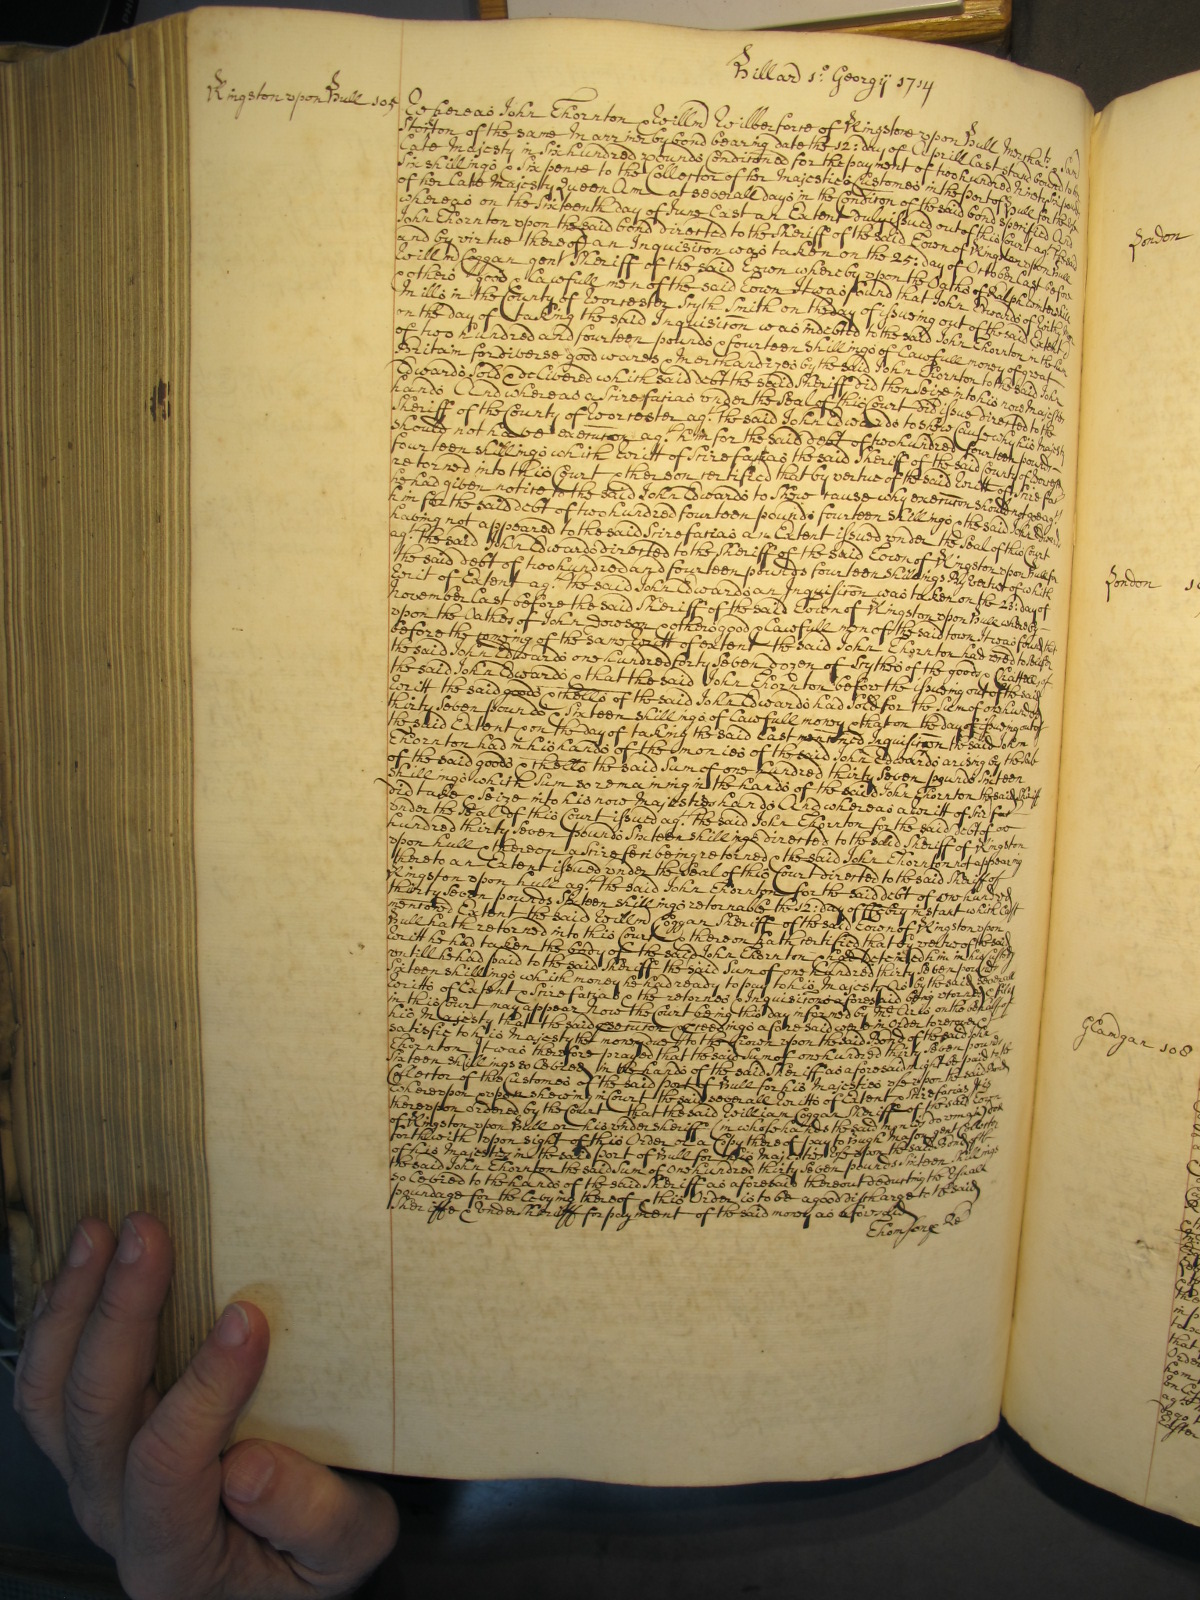 Hillard 1o: Georgij 1714
Kingston upon Hull 105
Whereas John Thornton & Willm Wilberforce of Kingston upon Hull Merchts & Saml
of the same Marriner by bond bearing date the 12: day of Aprill last stand bound to her
Late Majesty in Six hundred pounds Conditioned for the payment of two hundred Ninety Six pounds
Six shillings & Six pense to the Collector of her Majesties Customes in the port of Hull for the use
of her Late Majesty Queen Ann at severall days in the Condition of the said bond specified And
whereas on the Sixteenth day of June Last an Extent duly issued out of this Court agt the said
John Thornton upon the said bond directed to the Sheriff of the said Town of Kingston upon Hull
and by virtue thereof an Inquisition was taken on the 25: day of October Last before
Willm Coggan gent Sheriff of the said Town whereby upon the Oaths of Ralph
& others good & Lawfull men of the said Town It was found that John Edwards of
Mills in the County of Worcester Scyth Smith on the day of issueing out of the said Extent &
on the day of taking the said Inquisition was indebted to the said John Thornton in the Sum
of two hundred and fourteen pounds & fourteen shillings of Lawfull money of great
Britain for diverse good wares & Merchandizes by the said John Thornton to the said John
Edwards sold & delivered which said debt the said Sheriff did then seize into his now Majesties
hands And whereas a Scire facias under the Seal of this Court did issue directed to the
Sheriff of the County of Worcester agt the said John Edwards to shew Cause why his Majesty
should not have execution agt him for the said debt of two hundred fourteen pounds
fourteen shillings which Writt of Scire facias the said Sheriff of the said County of Worcester
retorned into this Court & thereon certified that by vertue of the said Writt of Scire facias
he had given notice to the said John Edwards to shew cause why execution should not go agt
him for the said debt of two hundred fourteen pounds fourteen shillings & the said John Edwards
having not appeared to the said Scire facias an Extent issued under the Seal of this Court
agt the said John Edwards directed to the Sheriff of the said Town of Kingston upon Hull for
the said debt of two hundred and fourteen pounds fourteen shillings By vertue of which
Writ of Extent agt the said John Edwards an Inquisition was taken on the 23: day of
November Last before the said Sheriff of the said Town of Kingston upon Hull whereby
upon the Oathes of John Dowson & others good & Lawfull men of the said town It was found that
before the comeing of the same Writt of extent the said John Thornton had
the said John Edwards one hundred forty Seven dozen of Scythes of the goods & Chattells of
the said John Edwards & that the said John Thornton before the issueing out of the said
Writt the said goods & chells of the said John Edwards had sold for the Sum of one hundred
thirty Seven pounds Sixteen shillings of Lawfull money & that on the day of issueing out of
the said Extent & on the day of taking the said last mentioned Inquisition the said John
Thornton had in his hands of the monies of the said John Edwards ariseing by the sale
of the said goods & chells the said Sum of one hundred thirty Seven pounds Sixteen
shillings which Sum so remaining in the hands of the said John Thornton the said Sheriff
did take & Seize into his now Majesties hands And whereas a Writt of Sci fac
under the Seal of this Court issued agt the said John Thornton for the said debt of one
hundred thirty Seven pounds Sixteen shillings directed to the said Sheriff of Kingston
upon hull & thereon a Scire feci being retorned & the said John Thornton not appearing
thereto an Extent issued under the Seal of this Court directed to the said Sheriff of
Kingston upon hull agt the said John Thornton for the said debt of one hundred
thirty Seven pounds Sixteen shillings retornable the 12: day of Febry instant which Last
mentioned Extent the said Willm Coggan Sheriff of the said Town of Kingston upon
Hull hath retorned into this Court & thereon hath certified that by vertue of the said
Writt he had taken the body of the said John Thornton & had detained him in his Custody
untill he had paid to the said Sheriff the said Sum of one hundred thirty Seven pounds
Sixteen shillings which money he had ready to pay to his Majesty As by the said severall
Writts of Extent & Scire facias & the retornes & Inquisitions aforesaid being retorned & filed
in this Court may appear Now the Court being this day informed by Mr on the behalf of
his Majesty that the said execution & proceedings aforesaid were in Order to recover &
satisfie to his Majesty the money due to the Crown upon the said Bond of the said John
Thornton It was therefore prayed that the said Sum of one hundred thirty Seven pounds
Sixteen shillings so Levied in the hands of the said Sheriff as aforesaid might be paid to the
Collector of the Customes of the said port of Hull for his Majesties use upon the said Bond
Whereupon & upon shewing in Court the said severall Writts of Extent & Scire facias It is
thereupon Ordered by the Court that the said William Coggan Sheriff of the said Town
of Kingston upon Hull or his undersheriff (in whose hands the said money is) do
forthwith upon sight of this Order or a Copy thereof pay to Hugh Mason gent Collector
of his Majesty in the said port of Hull for his Majesties use upon the said Bond of
the said John Thornton the said Sum of One hundred thirty Seven pounds Sixteen shillings
so Levied to the hands of the said Sheriff as aforesaid thereout deducting the Usuall
poundage for the Levying thereof & this Order is to be a good discharge to the said
Sheriffe & Undersheriff for payment of the said money as aforesaid
London
London
Glamgan 106